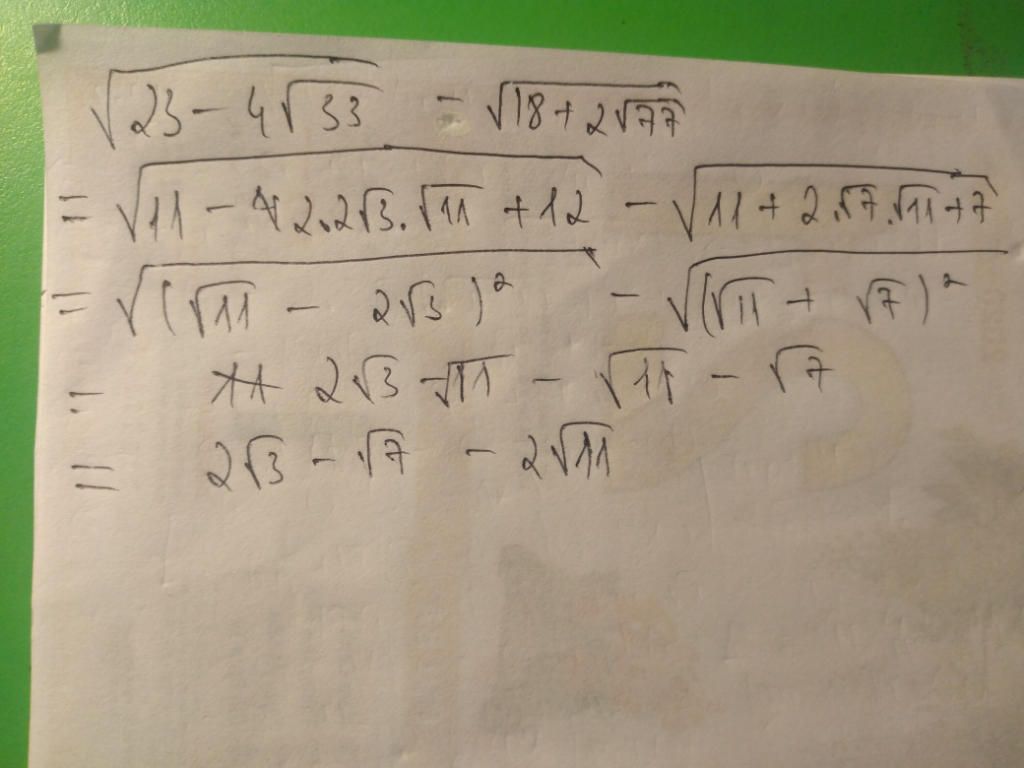 √(23 - 4√33) - √(18 + 2√77)
= √(11 - 2.2√3.√11 + 12) - √(11 + 2.√7.√11 + 7)
= √((√11 - 2√3)²) - √((√11 + √7)²)
= 2√3 - √11 - √11 - √7
= 2√3 - √7 - 2√11